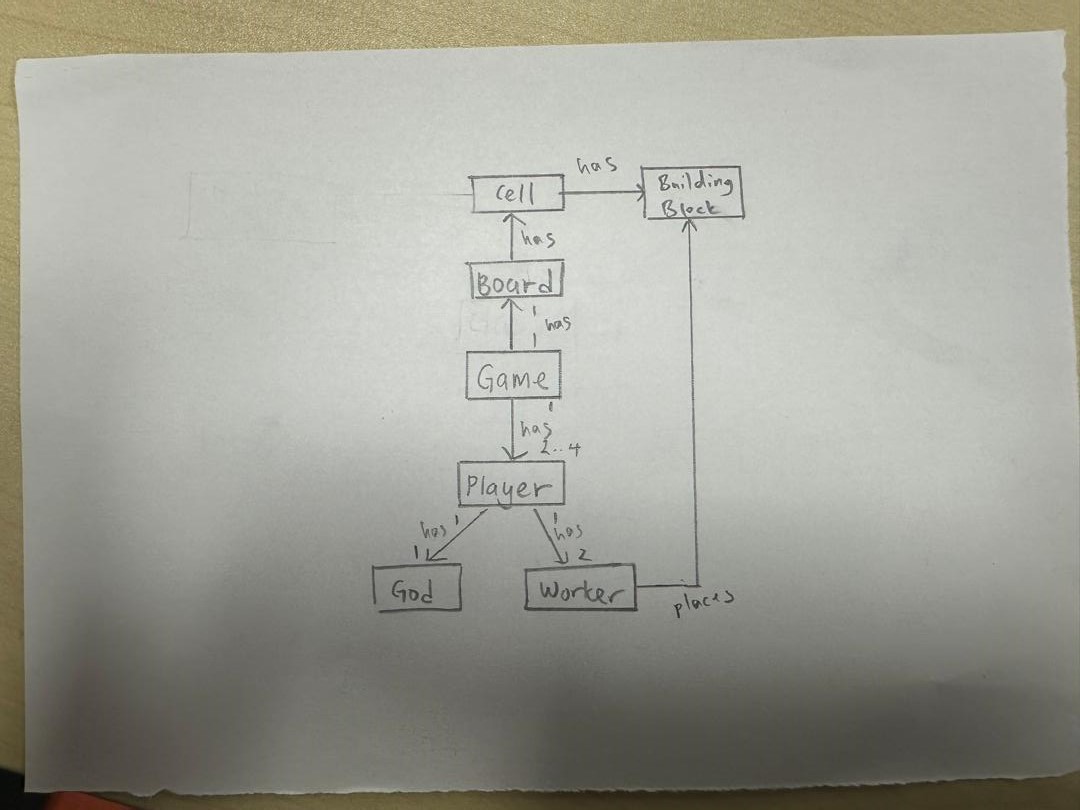 has
Cell
Building
Block
has
Board
1
has
1
Game
1
has
2..4
Player
has 1
1
has
1
2
God
Worker
places